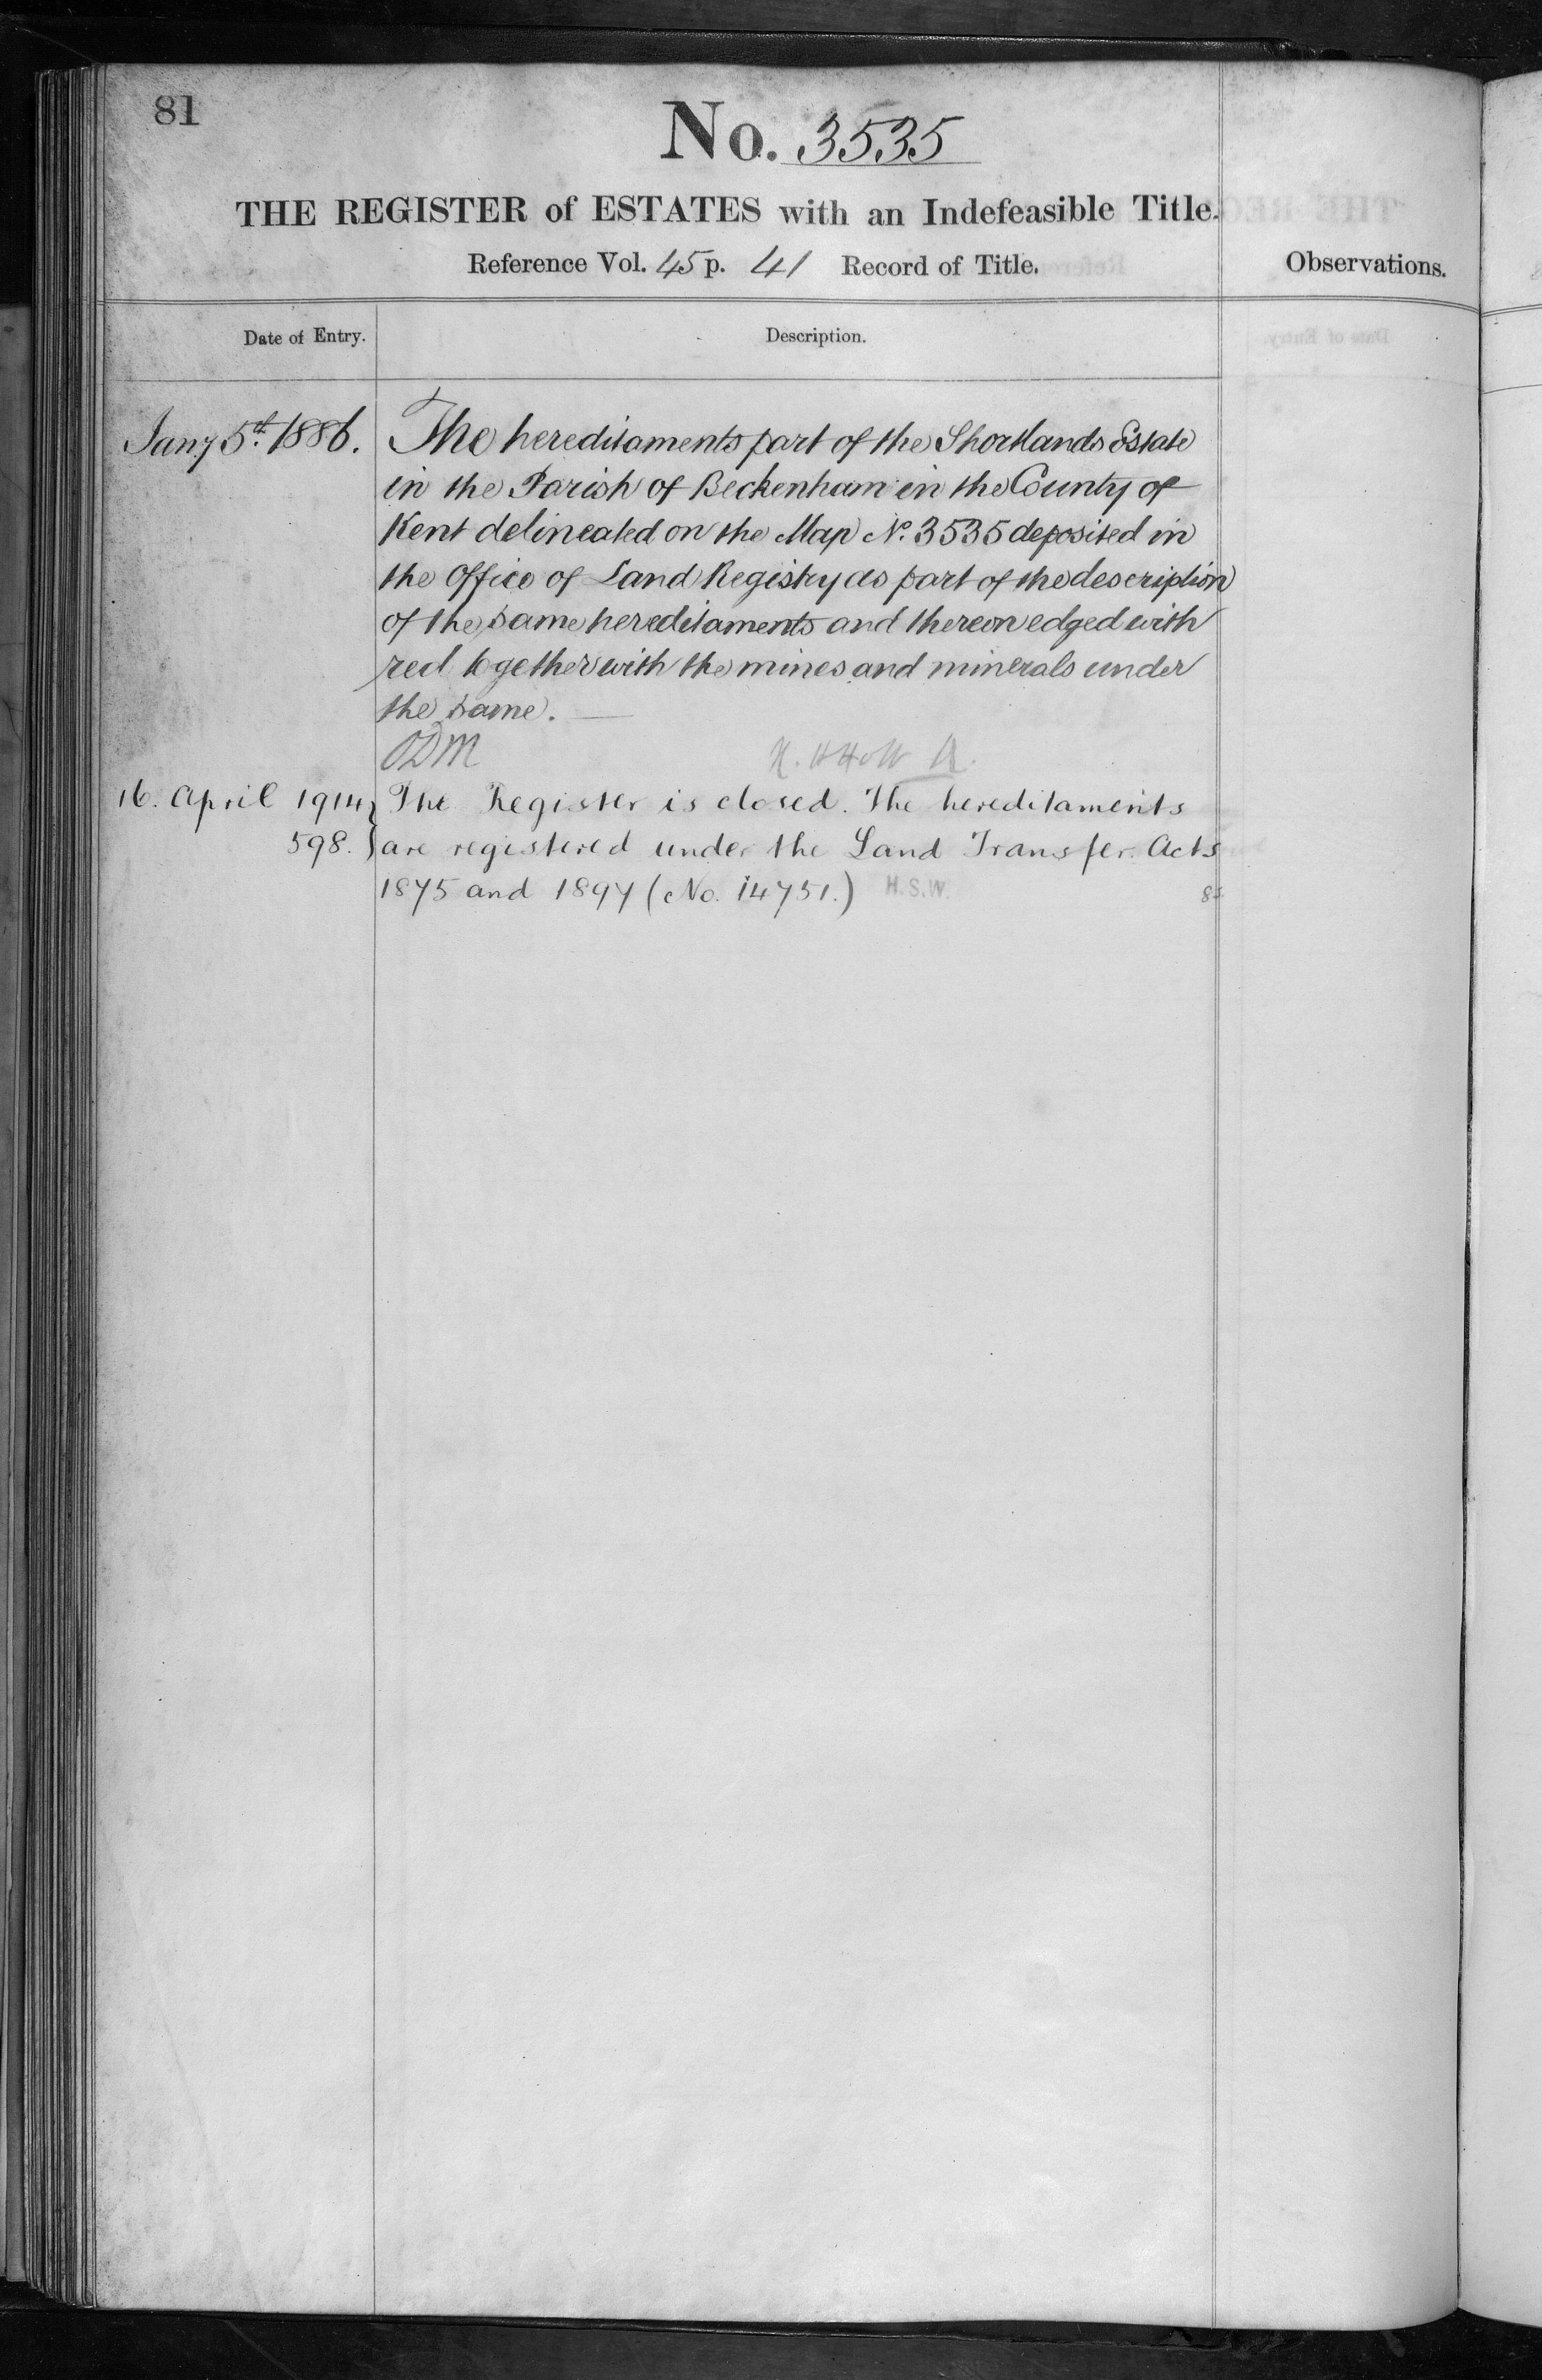 81
No. 3535
THE REGISTER of ESTATES with an Indefeasible Title.
Reference Vol. 45 p. 41 Record of Title.
Observations.
Date of Entry.
Description.
Jany 5th 1886.
The hereditaments part of the Shortlands Estate
in the Parish of Beckenham in the County of
Kent delineated on the Map No. 3535 deposited in
the Office of Land Registry as part of the description
of the same hereditaments and thereon edged with
red together with the mines and minerals under
the same.
ODM
16. April 1914
598.
The Register is closed. The hereditaments
are registered under the Land Transfer Acts
1875 and 1897 (No. 14751.) H.S.W.